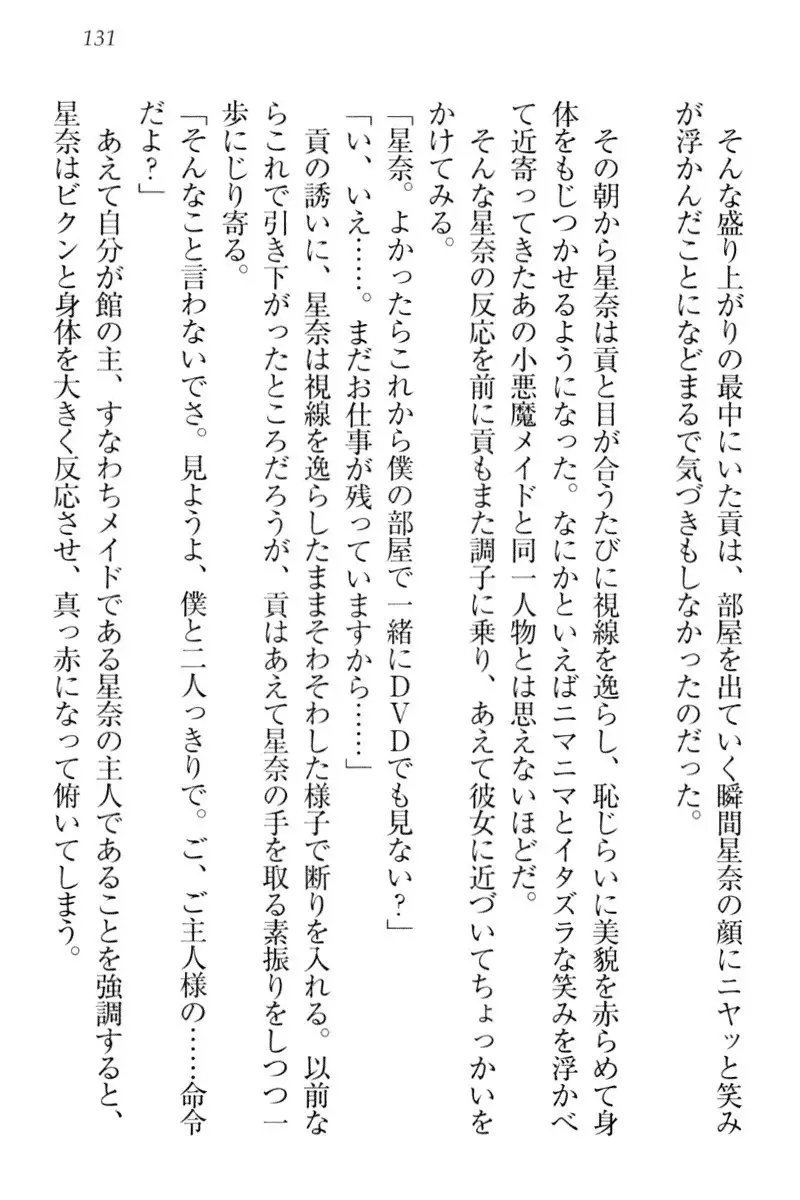 131
そんな盛り上がりの最中にいた貢は、部屋を出ていく瞬間星奈の顔にニヤッと笑み
が浮かんだことになどまるで気づきもしなかったのだった。
その朝から星奈は貢と目が合うたびに視線を逸らし、恥じらいに美貌を赤らめて身
体をもじつかせるようになった。なにかといえばニマニマとイタズラな笑みを浮かべ
て近寄ってきたあの小悪魔メイドと同一人物とは思えないほどだ。
そんな星奈の反応を前に貢もまた調子に乗り、あえて彼女に近づいてちょっかいを
かけてみる。
「星奈。よかったらこれから僕の部屋で一緒にDVDでも見ない？」
「い、いえ……。まだお仕事が残っていますから……」
貢の誘いに、星奈は視線を逸らしたままそわそわした様子で断りを入れる。以前な
らこれで引き下がったところだろうが、貢はあえて星奈の手を取る素振りをしつつ一
歩にじり寄る。
「そんなこと言わないでさ。見ようよ、僕と二人っきりで。ご、ご主人様の……命令
だよ？」
あえて自分が館の主、すなわちメイドである星奈の主人であることを強調すると、
星奈はビクンと身体を大きく反応させ、真っ赤になって俯いてしまう。